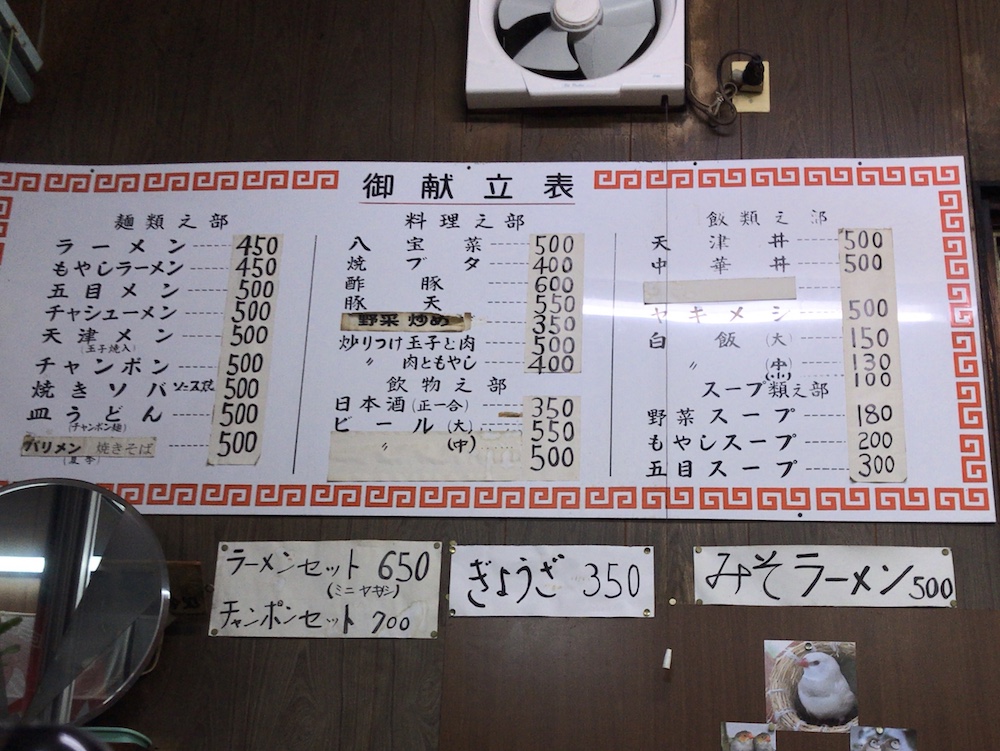 御献立表
麺類之部
ラーメン 450
もやしラーメン 450
五目メン 500
チャシューメン 500
天津メン 500
(玉子焼入)
チャンポン 500
焼きソバ ソース焼 500
皿うどん 500
(チャンポン麺)
バリメン 焼きそば 500
料理之部
八宝菜 500
焼ブタ 400
酢豚 600
豚天 550
野菜炒め 350
炒りつけ玉子と肉 500
〃 肉ともやし 400
飲物之部
日本酒(正一合) 350
ビール(大) 550
〃 (中) 500
飯類之部
天津丼 500
中華丼 500
ヤキメシ 500
白飯(大) 150
〃 (中) 130
(小) 100
スープ類之部
野菜スープ 180
もやしスープ 200
五目スープ 300
ラーメンセット 650
(ミニヤキメシ)
チャンポンセット 700
ぎょうざ 350
みそラーメン 500